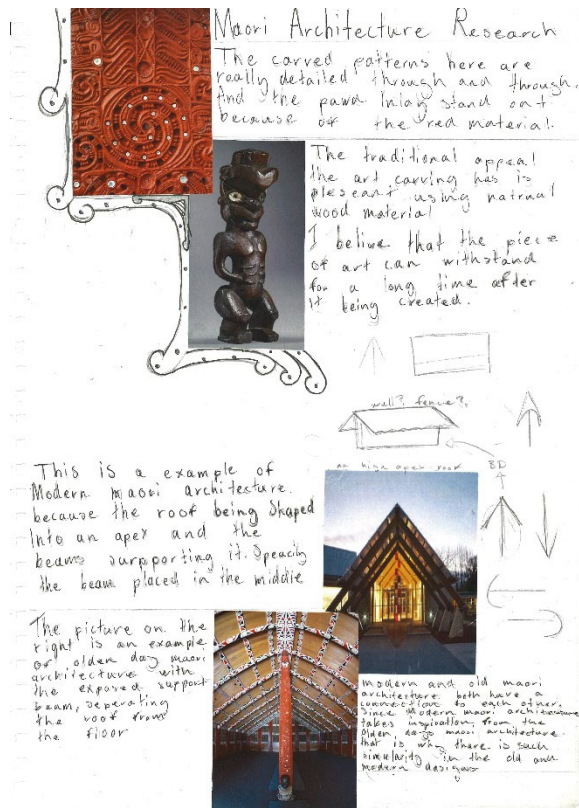 Maori Architecture Research
The carved patterns here are
really detailed through and through.
And the pawa inlay stand out
because of the red material.
The traditional appeal
the art carving has is
pleseant using natrual
wood material
I belive that the piece
of art can withstand
for a long time after
it being created.
wall? fence?
no high apex roof
BD
This is a example of
Modern maori architecture.
because the roof being shaped
into an apex and the
beams surpporting it. Speacily
the beam placed in the middle
The picture on the
right is an example
of olden day maori
architecture with
the exposed support
beam, seperating
the roof from
the floor
modern and old maori
architecture both have a
connection to each other.
Since modern maori architecture
takes inspiration from the
olden days maori architecture
that is why there is such
simularity in the old and
modern designs